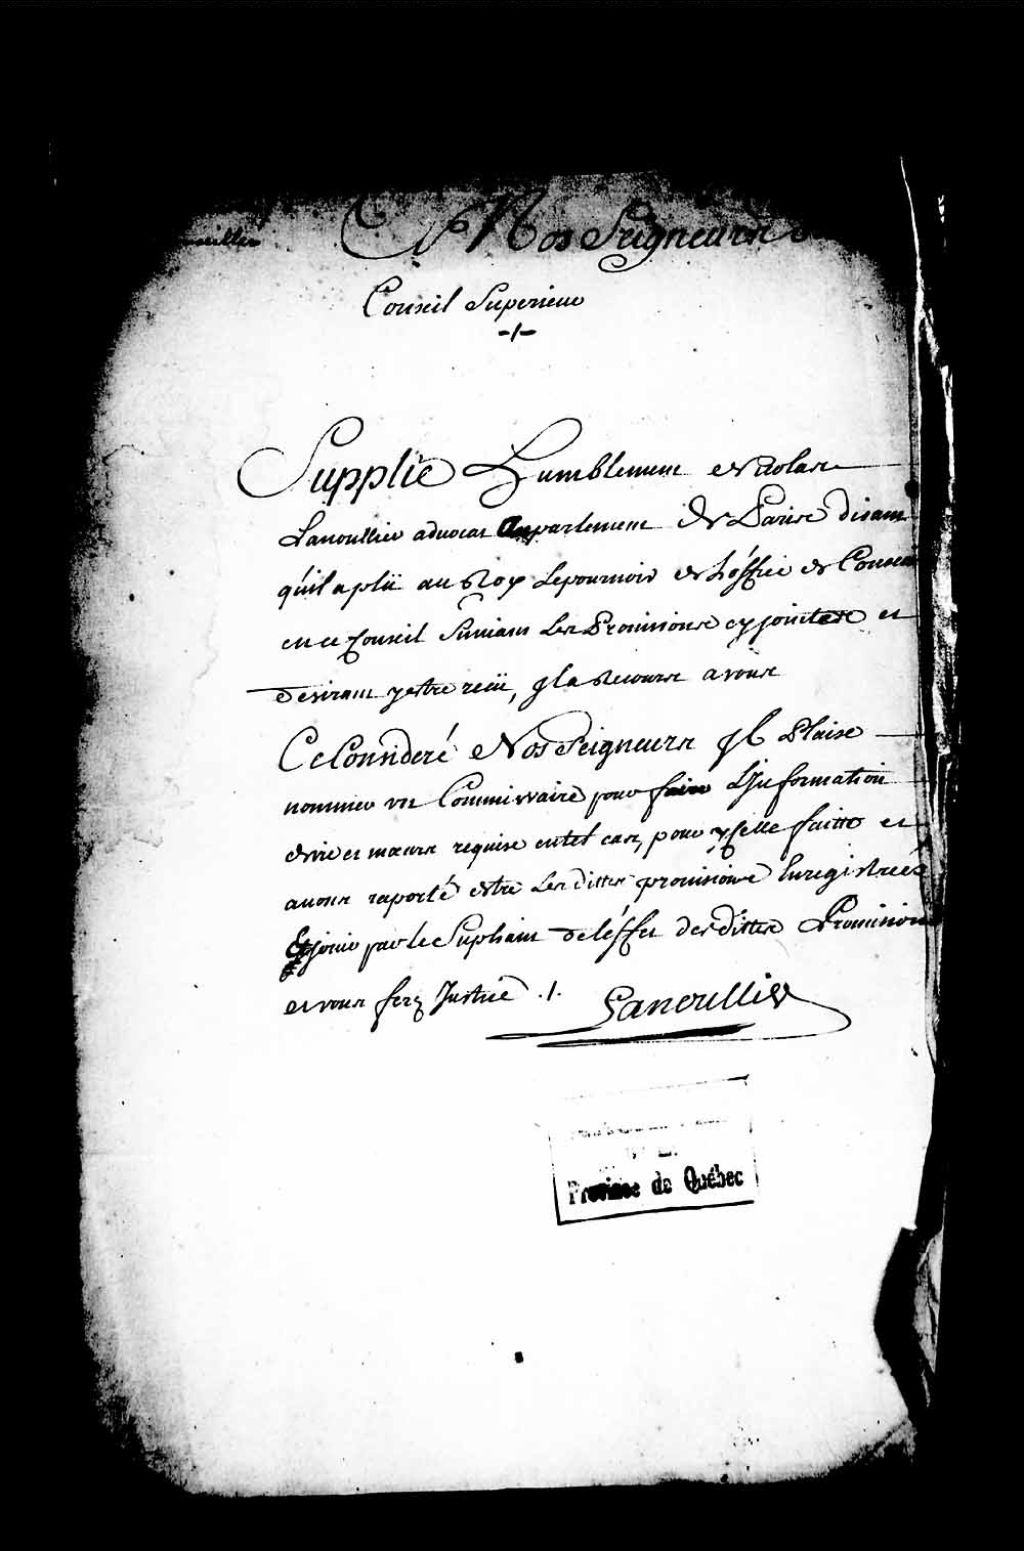 A Nos Seigneurs
Conseil Superieur
-/-
Supplie humblement Nicolas
Lanoullier advocat au parlement de Paris disant
qu'il a plû au Roy le pourvoir de L'office de Conseiller
en ce Conseil suivant les Provisions cy jointes et
desirant y estre reçû, Il a Recours a vous
Ce Consideré Nos Seigneurs Il Plaise
nommer un Commissaire pour faire L'Information
de vie et mœurs requise en tel cas, pour ycelle faitte et
a vous raporté estre Les dittes provisions Enregistrées
Et jouir par le Supliant de l'effet des dittes Provisions
et vous ferez Justice ./.
Lanoullier
Province de Québec